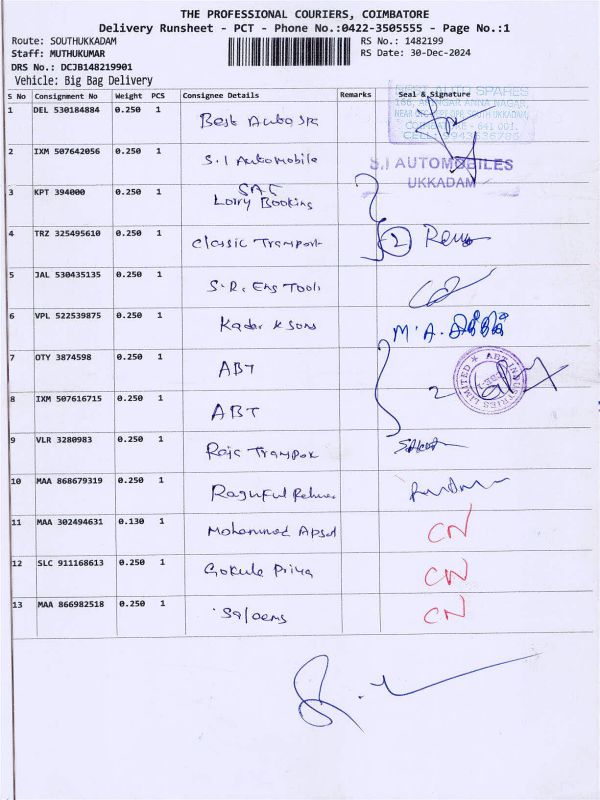 THE PROFESSIONAL COURIERS, COIMBATORE
Delivery Runsheet - PCT - Phone No.:0422-3505555 - Page No.:1
Route: SOUTHUKKADAM
Staff: MUTHUKUMAR
DRS No.: DCJB148219901
Vehicle: Big Bag Delivery
RS No.: 1482199
RS Date: 30-Dec-2024
S No Consignment No Weight PCS Consignee Details Remarks Seal & Signature
1 DEL 530184884 0.250 1 Best Auto
2 IXM 507642056 0.250 1 S.I Automobile
S.I AUTOMOBILES
UKKADAM
3 KPT 394000 0.250 1 Lorry Booking
4 TRZ 325495610 0.250 1 Classic Transport 2
5 JAL 530435135 0.250 1 S.R. Eng Tools
6 VPL 522539875 0.250 1 Kader & Sons M.A.
7 OTY 3874598 0.250 1 ABT
2
8 IXM 507616715 0.250 1 ABT
9 VLR 3280983 0.250 1 Raja Transpor
10 MAA 868679319 0.250 1
11 MAA 302494631 0.130 1 Mohammed Apsal CN
12 SLC 911168613 0.250 1 Gokula Priya CN
13 MAA 866982518 0.250 1 CN